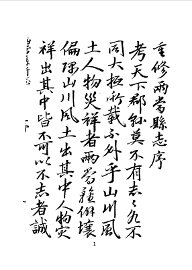 重修两當縣志序
考天下郡縣莫不有志〻各不
同大抵所載不外乎山川風
土人物災祥者兩當雖僻壤
偏隅山川風土出其中人物灾
祥出其中皆不可以不志者誠
1